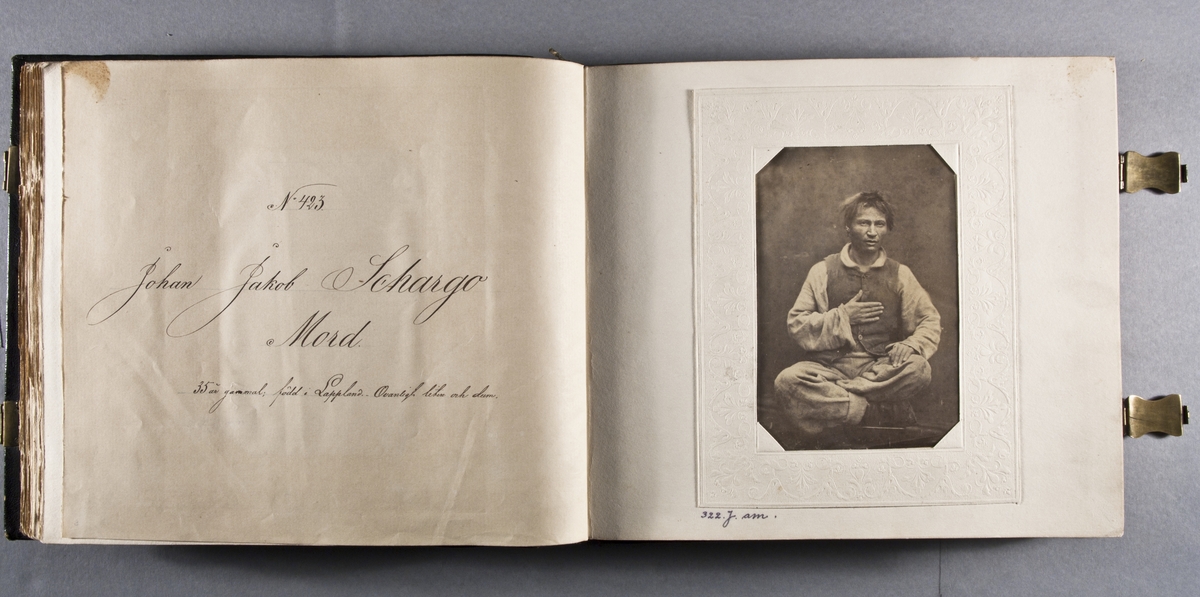 N. 423.
Johan Jakob Schargo
Mord.
35 år gammal, född i Lappland. och dum.
322. J. am.